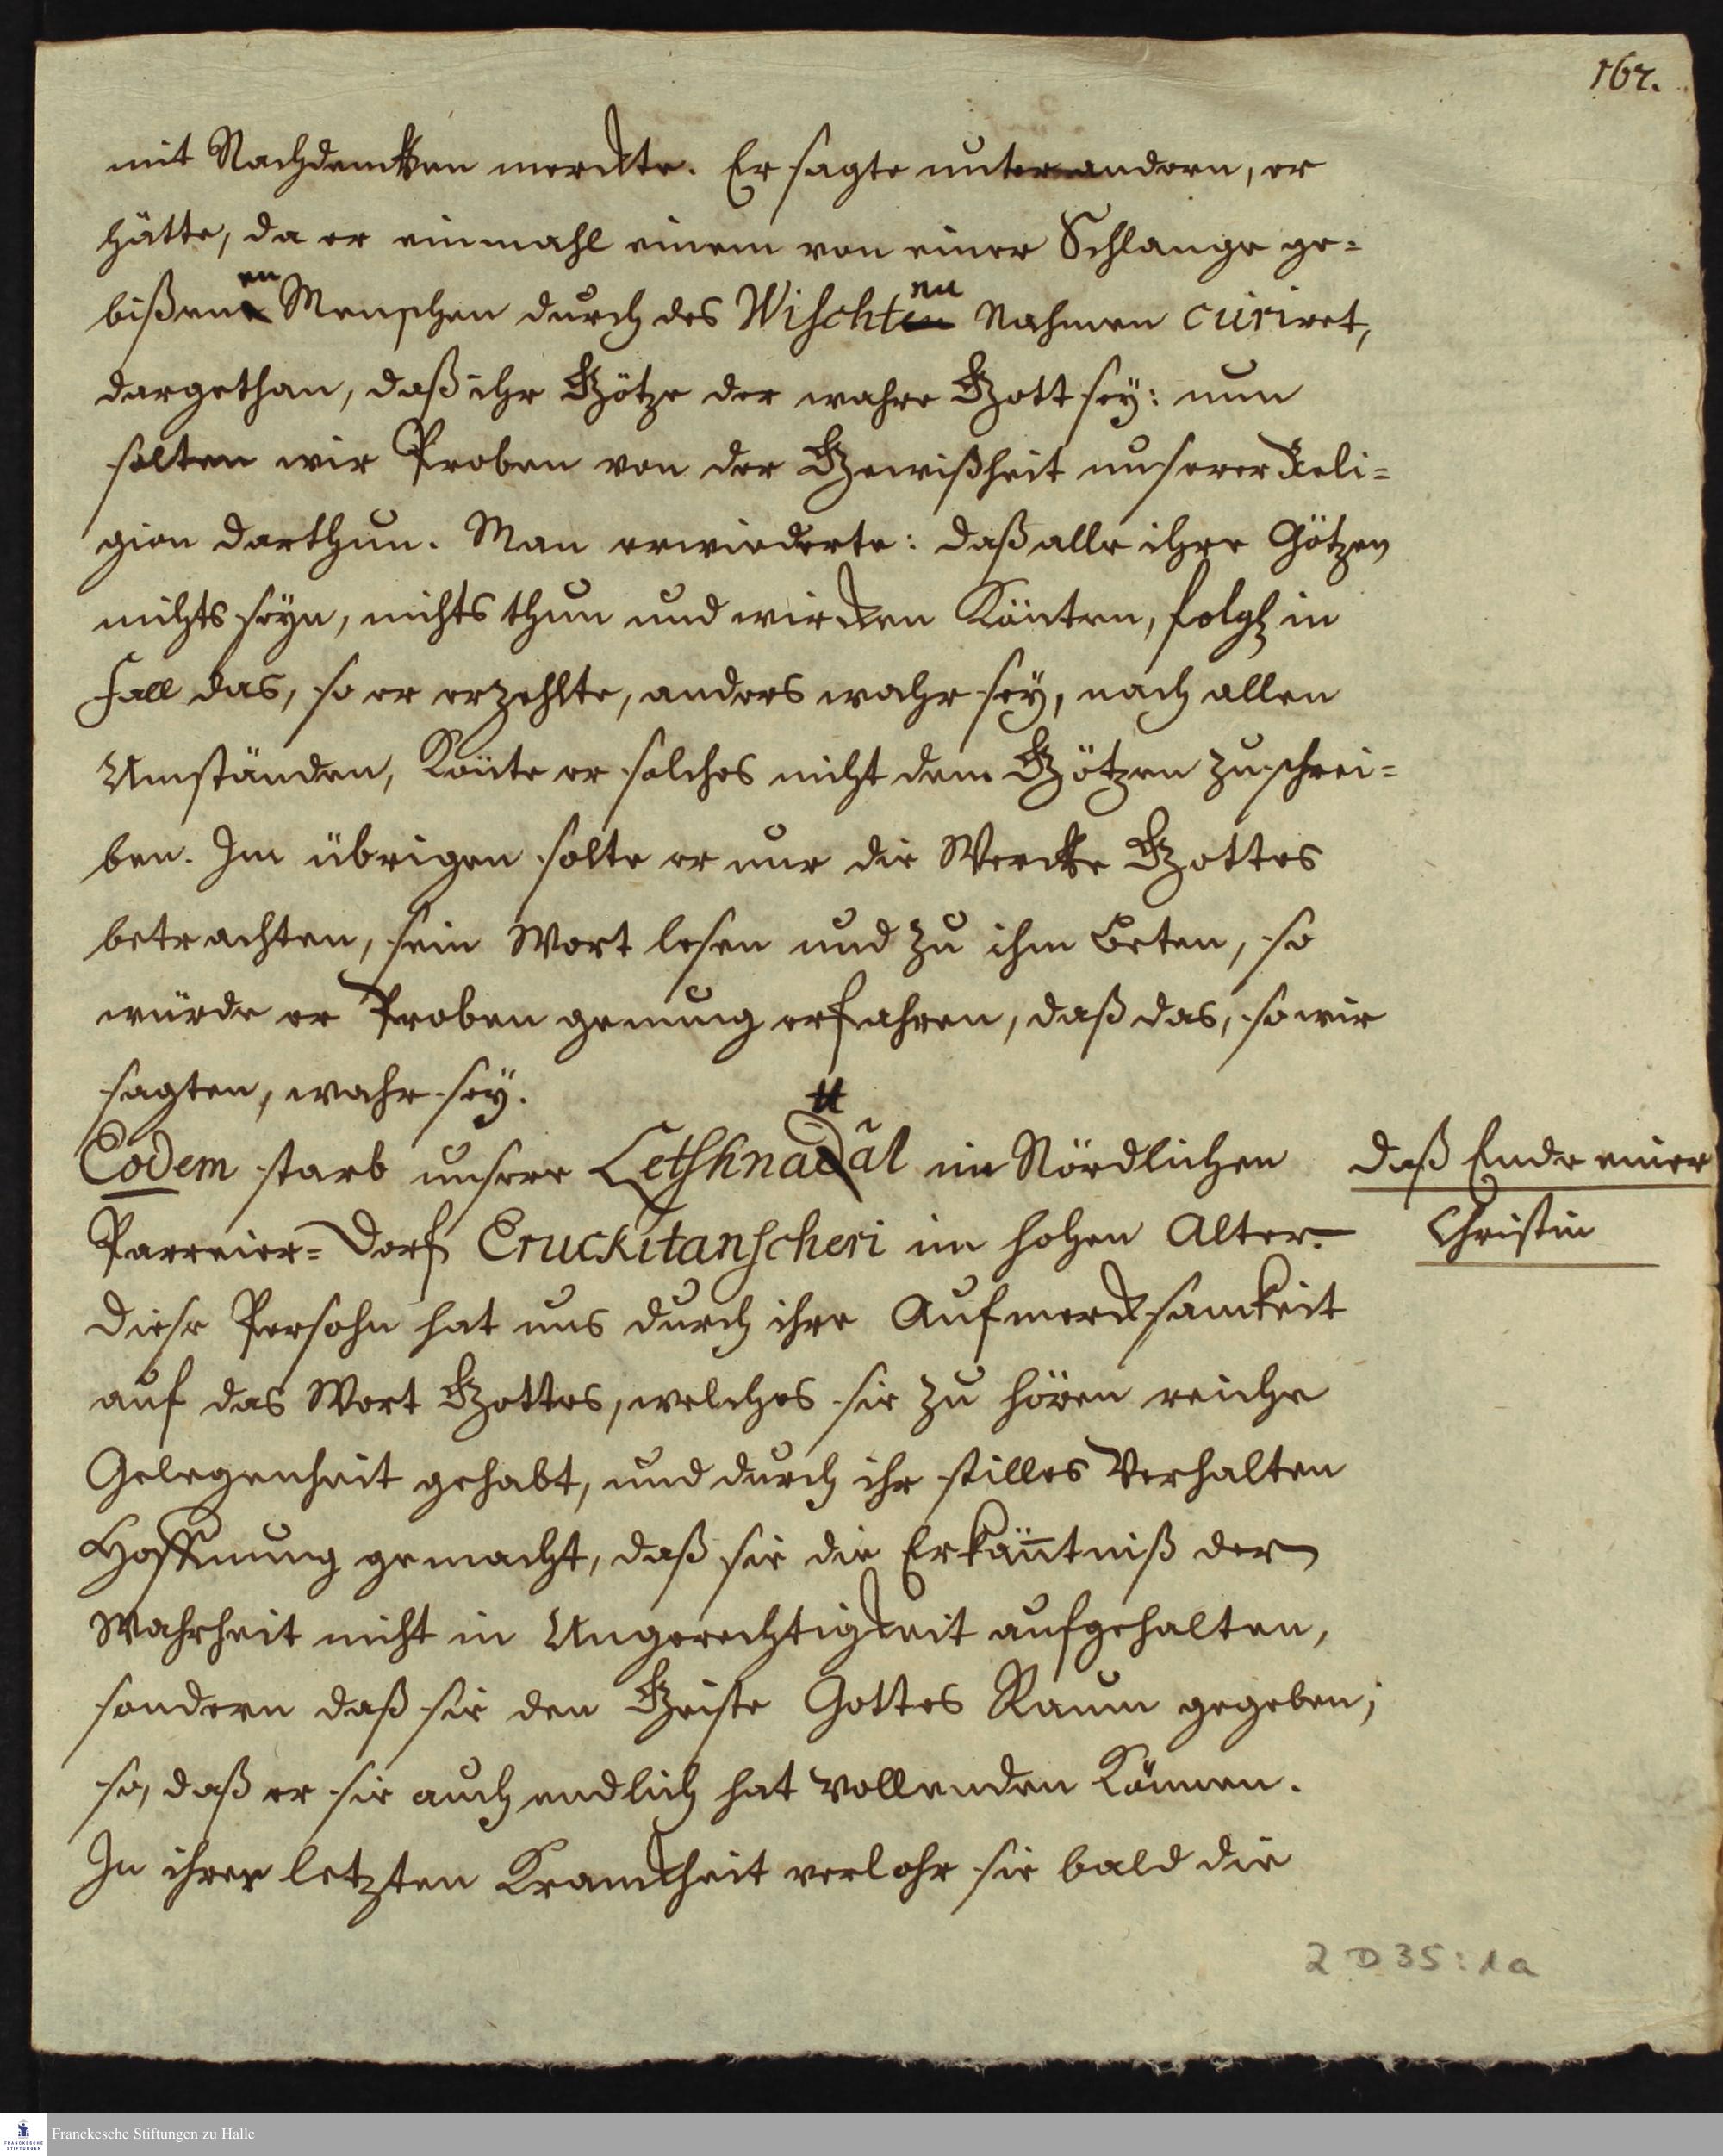 162.
mit Nachdencken merckte. Er sagte unter andern, er
hätte, da er einmahl einem von einer Schlange ge=
bißenen Menschen durch des Wischtnu Nahmen curiret,
dargethan, daß ihr Götze der wahre Gott sey: nun
solten wir Proben von der Gewißheit unserer Reli=
gion darthun. Man erwiederte: daß alle ihre Götzen
nichts seyn, nichts thun und wircken könten, folgl. in
Fall das, so er erzehlte, anders wahr sey, nach allen
Umständen, könte er solches nicht dem Götzen zuschrei=
ben. Im übrigen solte er nur die Wercke Gottes
betrachten, sein Wort lesen und zu ihm beten, so
würde er Proben genung erfahren, daß das, so wir
sagten, wahr sey.
Eodem starb unsere Letshnaál im Nördlichen
Parreier-Dorf Eruckitanscheri im hohen Alter.
Diese Persohn hat uns durch ihre Aufmercksamkeit
auf das Wort Gottes, welches sie zu hören reiche
Gelegenheit gehabt, und durch ihr stilles Verhalten
Hoffnung gemacht, daß sie die Erkäntniß der
Wahrheit nicht in Ungerechtigkeit aufgehalten,
sondern daß sie den Geiste Gottes Raum gegeben;
so, daß er sie auch endlich hat vollenden können.
In ihrer letzten Kranckheit verlohr sie bald die
daß Ende einer
Christin
2 D 35 : 1a
Franckesche Stiftungen zu Halle